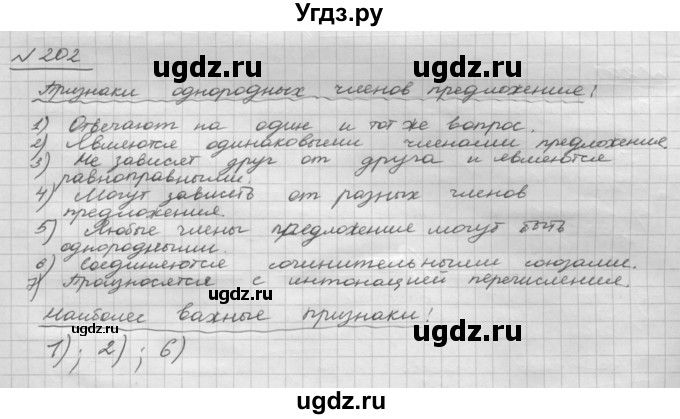 Угдз.ру
№ 202
Признаки однородных членов предложения!
1) Отвечают на один и тот же вопрос.
2) Являются одинаковыми членами предложения
3) Не зависят друг от друга и являются
равноправными.
4) Могут зависеть от разных членов
предложения.
5) Любые члены предложения могут быть
однородными.
6) Соединяются сочинительными союзами.
7) Произносятся с интонацией перечисления.
Наиболее важные признаки!
1); 2); 6)
ugdz.ru
ugdz.ru
ugdz.ru
ugdz.ru
ugdz.ru
ugdz.ru
ugdz.ru
ugdz.ru